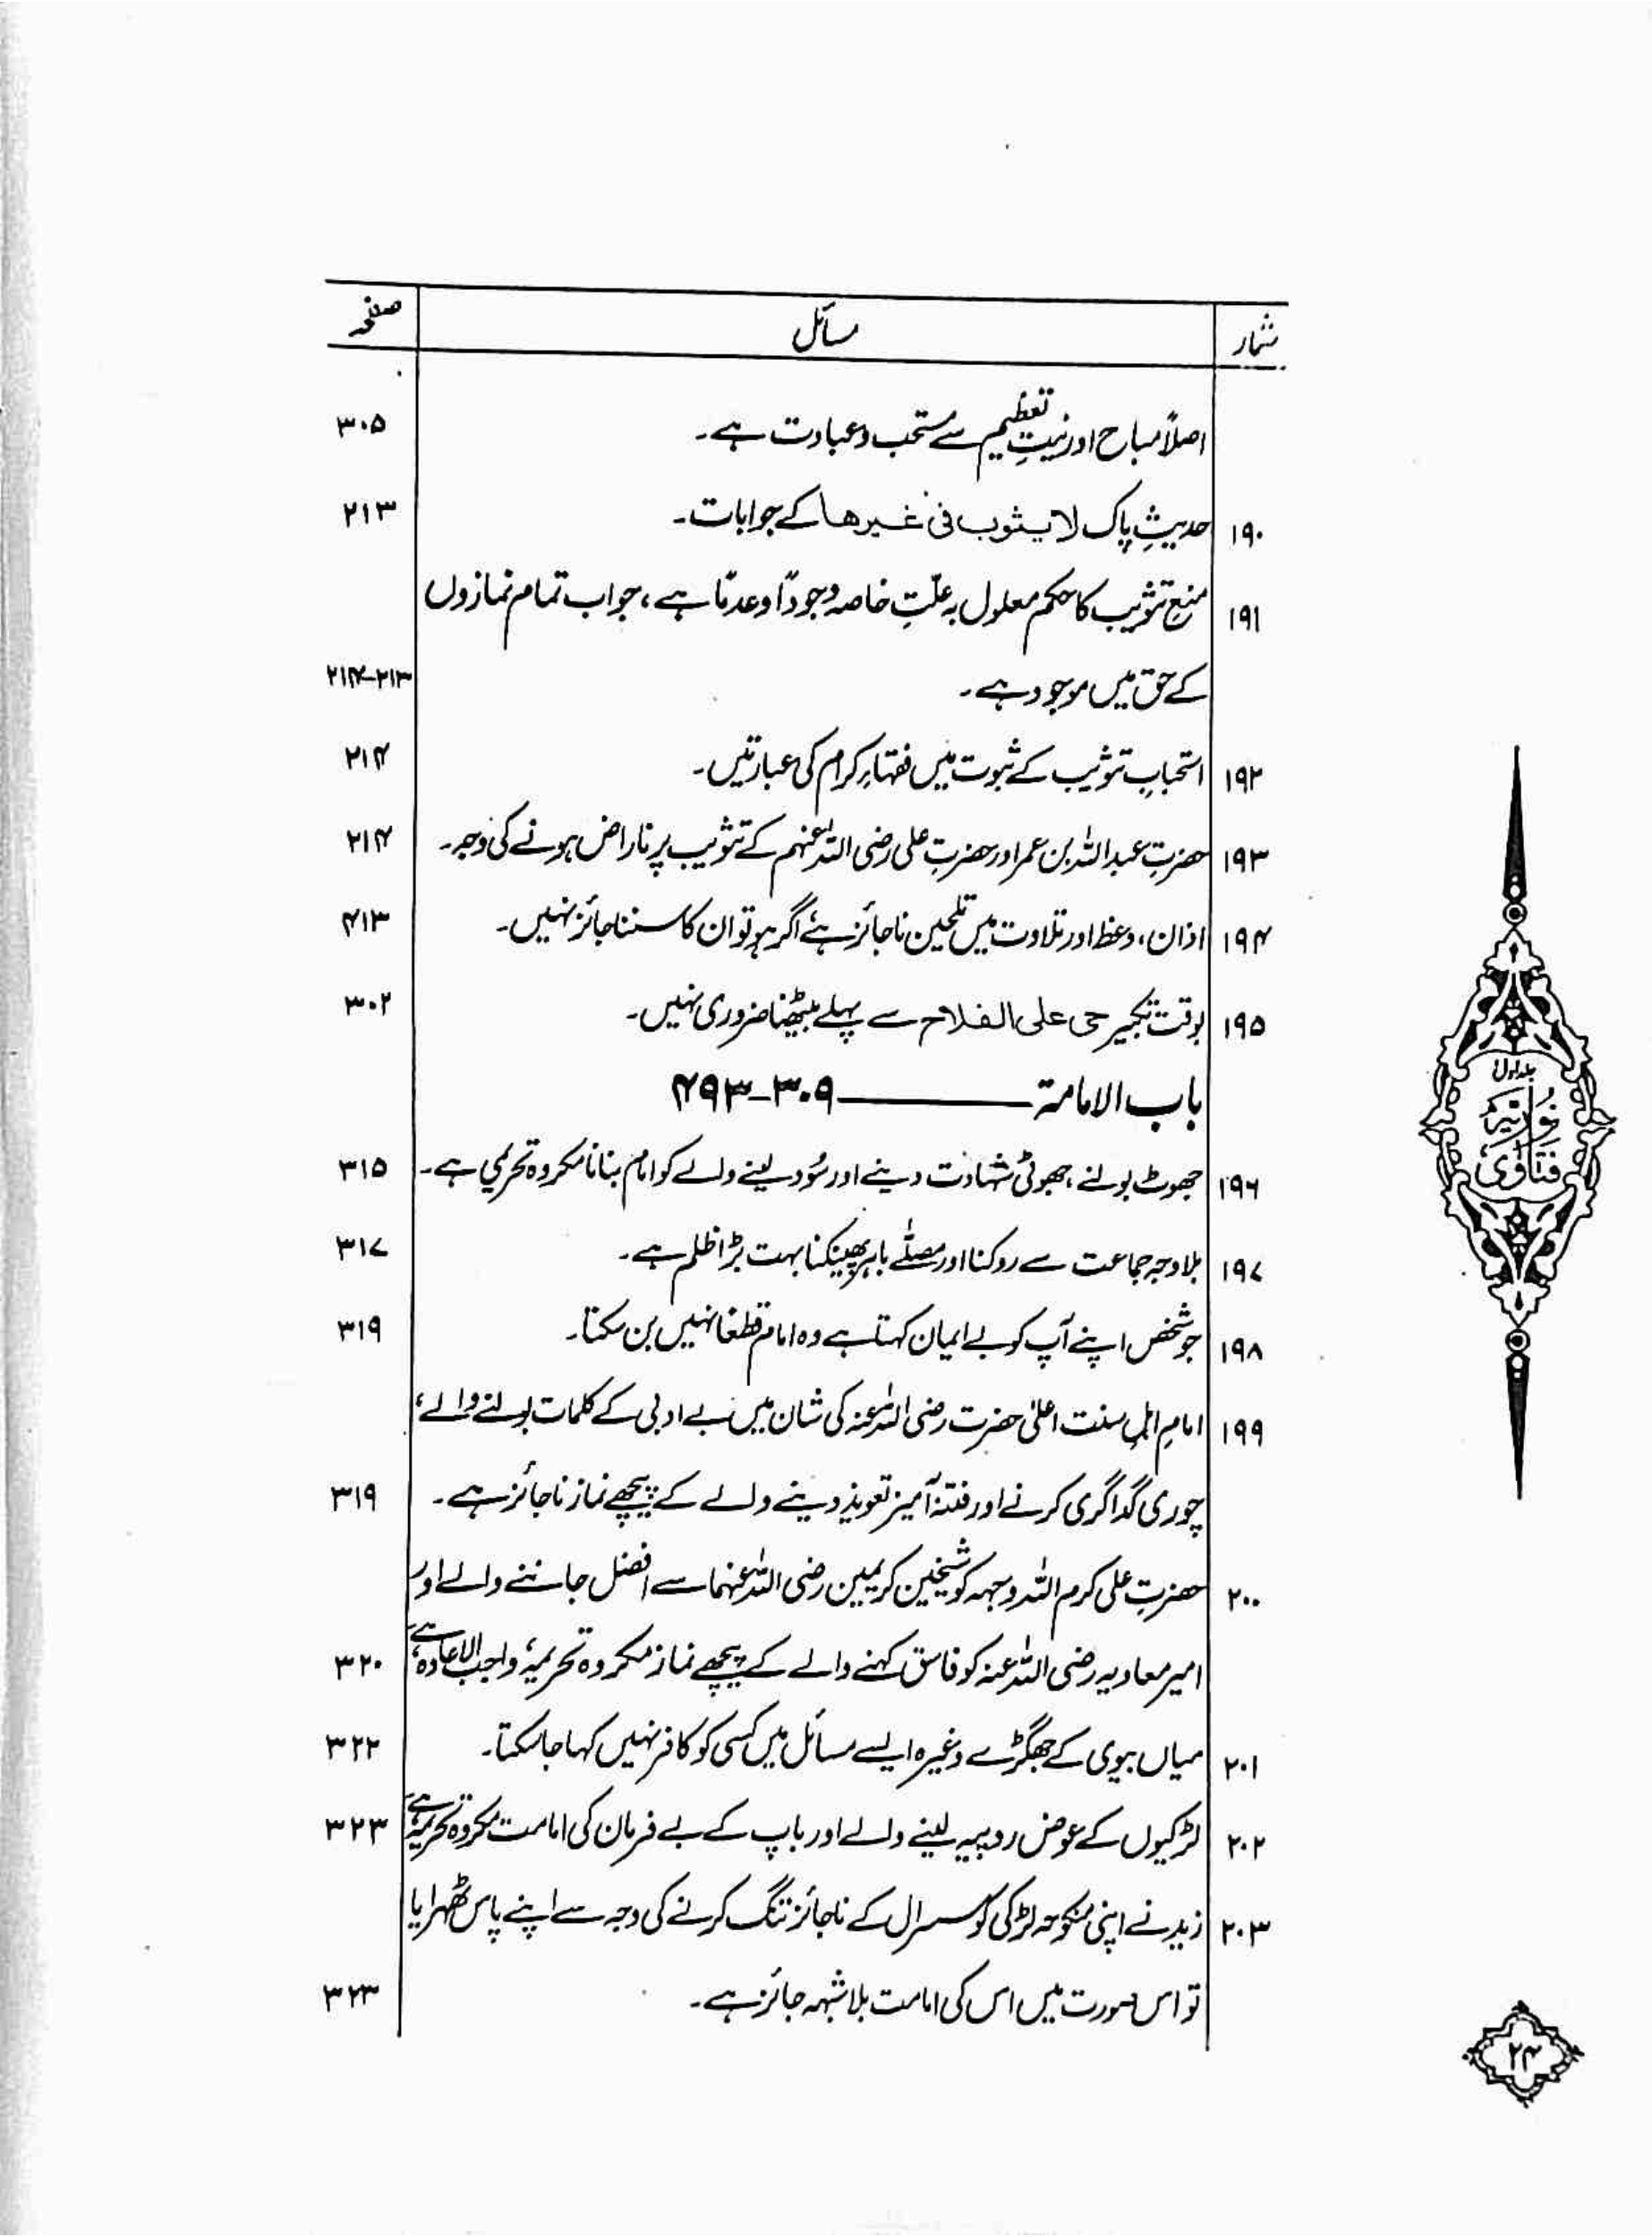 شمار مسائل صفحہ
اصلاً مباح اور نیتِ تعظیم سے مستحب و عبادت ہے۔ ۳۰۵
۱۹۰ حدیثِ پاک لا یثوب فی غیرھا کے جوابات۔ ۲۱۳
۱۹۱ منعِ تثویب کا حکم معلول بہ علّتِ خاصہ وجوداً وعدمًا ہے، جواب تمام نمازوں
کے حق میں موجود ہے۔ ۲۱۳-۲۱۴
۱۹۲ استحبابِ تثویب کے ثبوت میں فقہاءِ کرام کی عبارتیں۔ ۲۱۴
۱۹۳ حضرتِ عبداللہ بن عمر اور حضرتِ علی رضی اللہ عنہم کے تثویب پر ناراض ہونے کی وجہ۔ ۲۱۴
۱۹۴ اذان، وعظ اور تلاوت میں تلحین ناجائز ہے اگر ہو تو ان کا سننا جائز نہیں۔ ۴۱۳
۱۹۵ بوقت تکبیر حی علی الفلاح سے پہلے بیٹھنا ضروری نہیں۔ ۳۰۲
باب الامامۃ ــــــ ۳۰۹-۴۹۳
۱۹۶ جھوٹ بولنے، جھوٹی شہادت دینے اور سُود لینے والے کو امام بنانا مکروہ تحریمی ہے۔ ۳۱۵
۱۹۷ بلاوجہ جماعت سے روکنا اور مصلّے باہر پھینکنا بہت بڑا ظلم ہے۔ ۳۱۷
۱۹۸ جو شخص اپنے آپ کو بے ایمان کہتا ہے وہ امام قطعًا نہیں بن سکتا۔ ۳۱۹
۱۹۹ امامِ اہلِ سنت اعلیٰ حضرت رضی اللہ عنہ کی شان میں بے ادبی کے کلمات بولنے والے،
چوری گداگری کرنے اور فتنہ آمیز تعویذ دینے والے کے پیچھے نماز ناجائز ہے۔ ۳۱۹
۲۰۰ حضرتِ علی کرم اللہ وجہہ کو شیخین کریمین رضی اللہ عنہما سے افضل جاننے والے اور
امیر معاویہ رضی اللہ عنہ کو فاسق کہنے والے کے پیچھے نماز مکروہ تحریمیہ، واجب الاعادہ ہے، ۳۲۰
۲۰۱ میاں بیوی کے جھگڑے وغیرہ ایسے مسائل میں کسی کو کافر نہیں کہا جا سکتا۔ ۳۲۲
۲۰۲ لڑکیوں کے عوض روپیہ لینے والے اور باپ کے بے فرمان کی امامت مکروہ تحریمیہ ہے ۳۲۳
۲۰۳ زید نے اپنی منکوحہ لڑکی کو سسرال کے ناجائز تنگ کرنے کی وجہ سے اپنے پاس ٹھہرایا
تو اس صورت میں اس کی امامت بلا شبہہ جائز ہے۔ ۳۲۳
جلد اول
نوریہ
فتاوی
۲۴